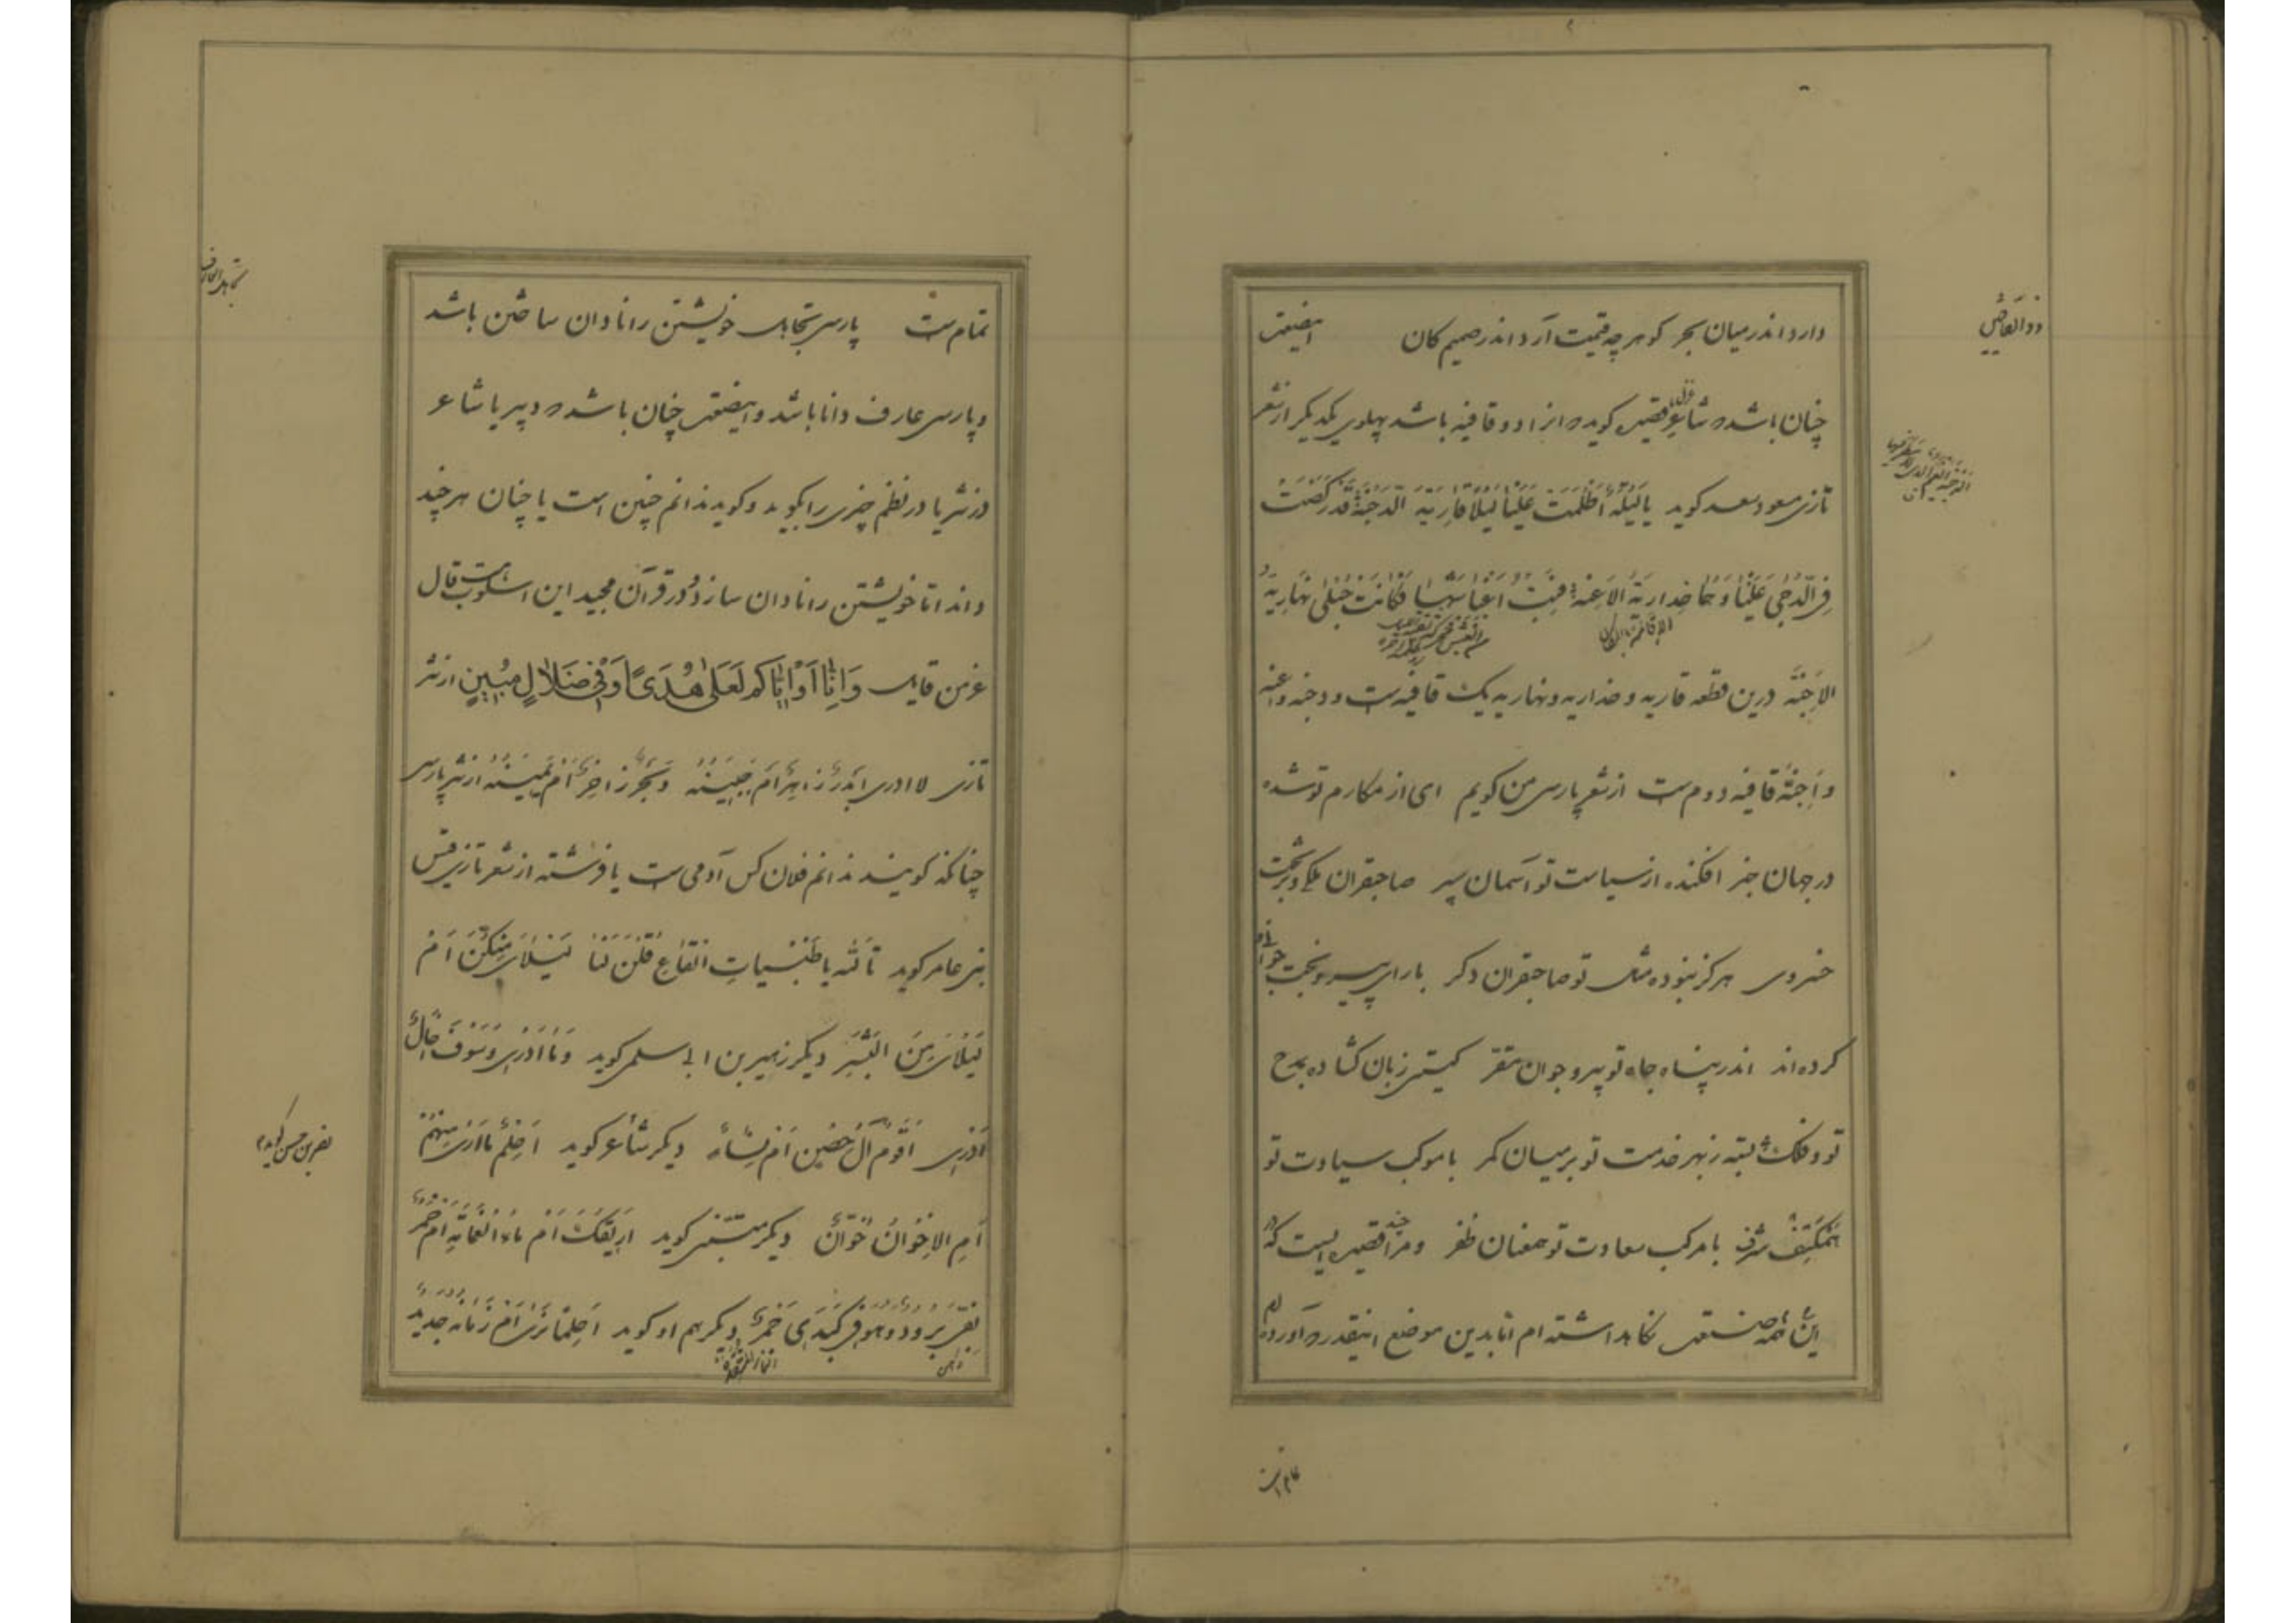 دارد اندر میان بحر گوهر چه قیمت آرد اندر صمیم کان اینصنعت
ذو القافیتین
چنان باشد که شاعر قصیده گوید که انرا دو قافیه باشد پهلوی یکدیگر از شعر
تازی مسعود سعد کوید یا لَیْلَةً اَظْلَمَتْ عَلَیْنا لَیْلاءَ قاریّةَ الدُّجُنَّةْ قَدْ رَکَضَتْ
فِی الدُّجی عَلَیْنا دُهْمًا خُداریّةَ الاَعِنَّةْ فَبِتُّ اَقْتاسُها فَکانَتْ حُبْلی نَهاریّةَ
الاَجِنَّةْ درین قطعه قاریه و خداریه و نهاریه یک قافیه است و دجنه و اعنه
و اَجِنّة قافیه دوم است از شعر پارسی من کویم ای از مکارم تو شده
در جهان خبر افکنده از سیاست تو آسمان سپر صاحبقران ملکی و بر تخت
خسروی هرگز نبوده مثل تو صاحبقران دکر با رای پیر و بخت جوانی و
کرده‌اند اندر پناه جاه تو پیر و جوان مقر کیتی زبان کشاده بمدح
تو و فلک بسته ز بهر خدمت تو بر میان کمر با موکب سیادت تو
همکتف شرف با مرکب سعادت تو همعنان ظفر و مرا چند قصیده ایست که
این همه صنعت نکاه داشته ام اما بدین موضع اینقدر که آوردم
تمام است
تمام است پارسی تجاهل خویشتن را نادان ساختن باشد
تجاهل العارف
و پارسی عارف دانا باشد و اینصنعت چنان باشد که دبیر یا شاعر
در نثر یا در نظم چیزی را بکوید و کوید ندانم چنین است یا چنان هر چند
داند اما خویشتن را نادان سازد و در قرآن مجید این اسلوب است قال
عز من قایل وَاِنّا اَوْ اِیّاکُم لَعَلی هُدیً اَوْ فی ضَلالٍ مُبینٍ از نثر
تازی لا ادری اَبَدْرٌ زاهِرٌ اَم جَبینُهُ وَبَحْرٌ زاخِرٌ اَمْ یَمینُهُ از نثر پارسی
چنانکه کویند ندانم فلان کس آدمی است یا فرشته از شعر تازی قیس
بنی عامر کوید تاَللّهِ یا ظَبَیاتِ القاعِ قُلْنَ لَنا لَیْلایَ مِنْکُنَّ اَمْ
لَیْلی مِنَ البَشَرِ دیکر زهیر بن ابی سلمی کوید وَما اَدْری وَسَوْفَ اِخالُ
اَدْری اَقَوْمٌ آلُ حِصْنٍ اَمْ نِساءُ دیکر شاعر کوید اَحِلْمٌ ما اَرَی مِنْهُمْ
نصر بن حسن کوید
اَمِ الاِخْوانُ خُوّانُ دیکر متنبی کوید اَریقُکَ اَمْ ماءُ الغَمامَةِ اَمْ خَمْرُ
بِفِیَّ بَرُودٌ وَهُوَ فی کَبِدی جَمْرُ دیکر هم او کوید اَحُلْمًا نَری اَمْ زَمانًا جَدیدًا